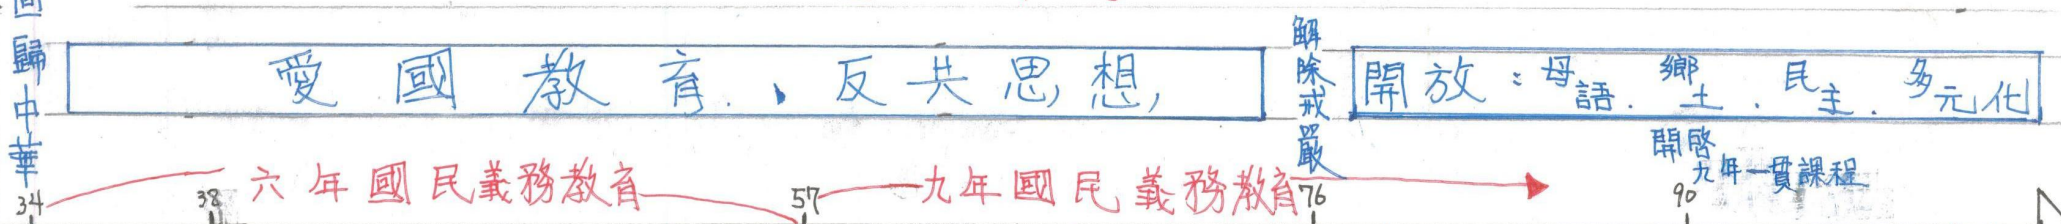 回歸中華
愛國教育、反共思想,
解除戒嚴
開放：母語.鄉土.民主.多元化
開啓九年一貫課程
六年國民義務教育
九年國民義務教育
34 38 57 76 90